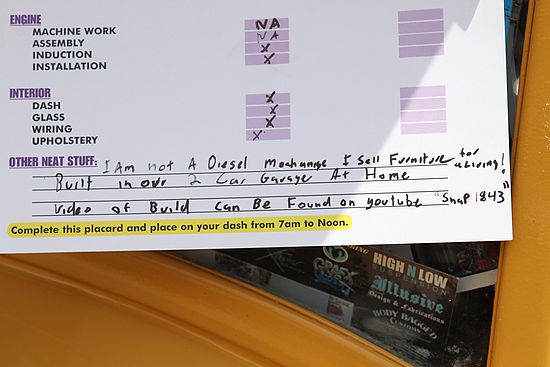 ENGINE NA
MACHINE WORK NA
ASSEMBLY X
INDUCTION X
INSTALLATION
INTERIOR
DASH X
GLASS X
WIRING X
UPHOLSTERY X
OTHER NEAT STUFF: I Am not A Diesel Mechanige I Sell Furniture for a Living!
Built in our 2 Car Garage At Home
Video of Build can Be Found on youtube "Snap 1843"
Complete this placard and place on your dash from 7am to Noon.
HIGH N LOW
SUSPENSION
Illusive
Design & Fabrications
BODY BAGGED
CUSTOMS